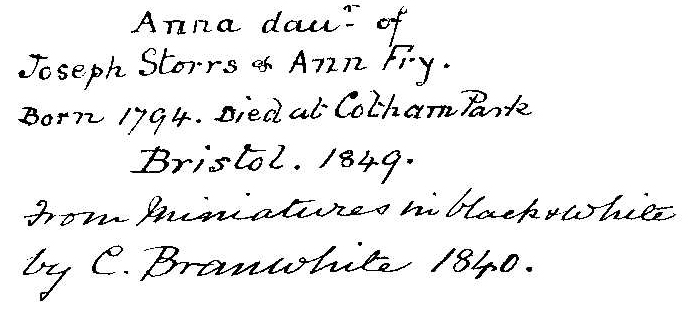 Anna dauʳ of
Joseph Storrs & Ann Fry.
Born 1794. Died at Cotham Park
Bristol. 1849.
From Miniatures in black & White
by C. Branwhite 1840.